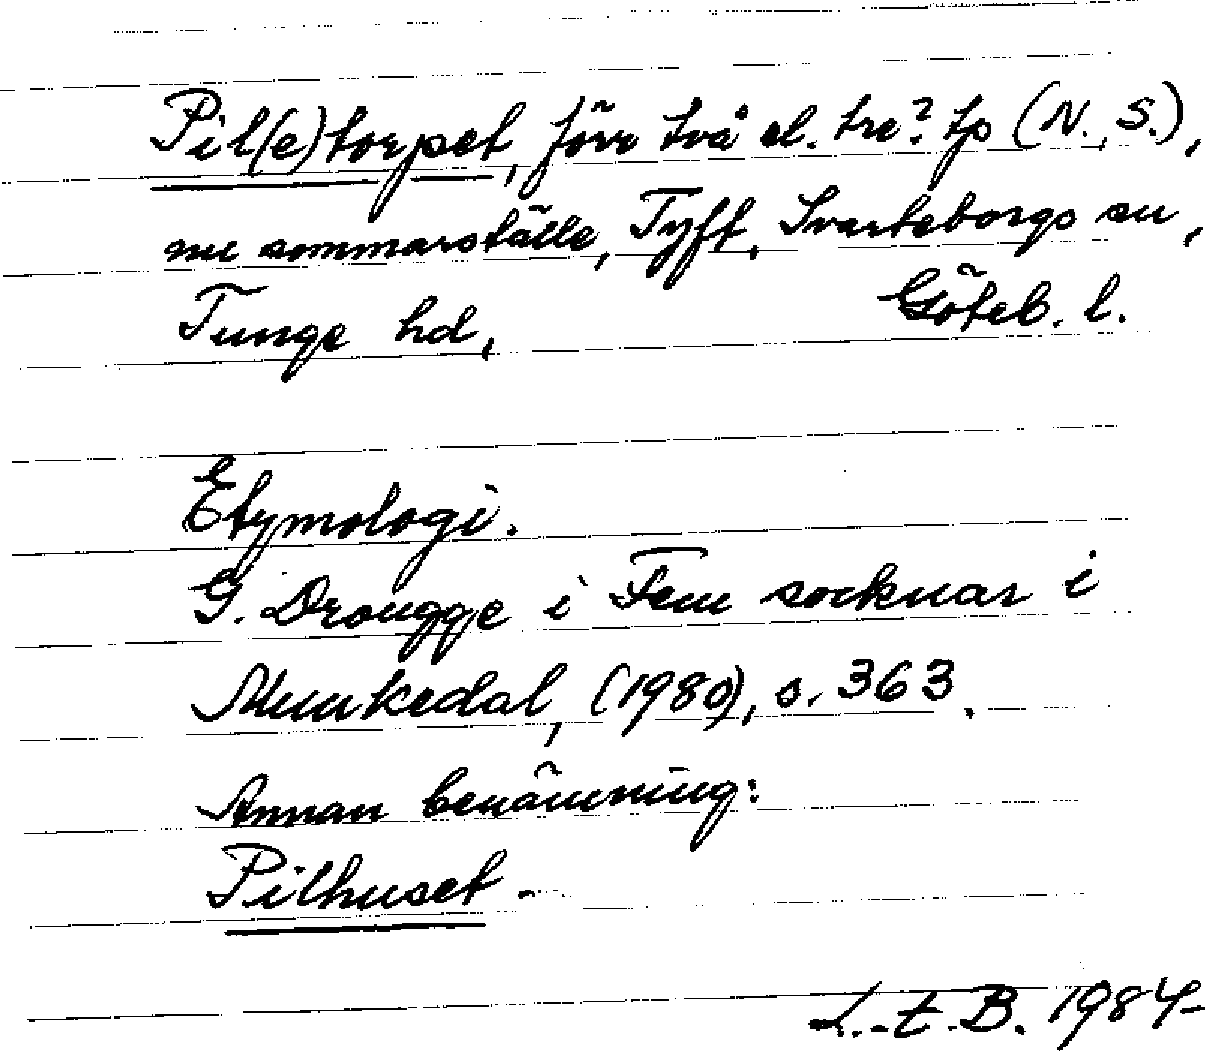 Pil(e)torpet, förr två el. tre? tp (N., S.),
nu sommarställe, Tyft, Svarteborgs sn,
Tunge hd, Göteb. l.
Etymologi.
G. Drougge i Fem socknar i
Munkedal, (1980), s. 363.
Annan benämning:
Pilhuset -
L.-t.B. 1984-